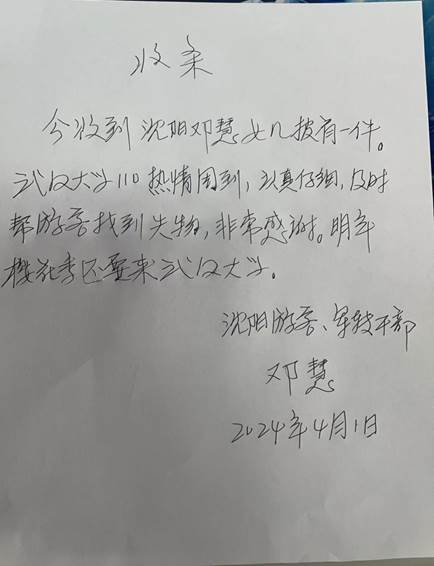 收条
今收到沈阳邓慧女儿披肩一件。
武汉大学110热情周到,认真仔细,及时
帮游客找到失物,非常感谢。明年
樱花季还要来武汉大学。
沈阳游客、军转干部
邓慧
2024年4月1日